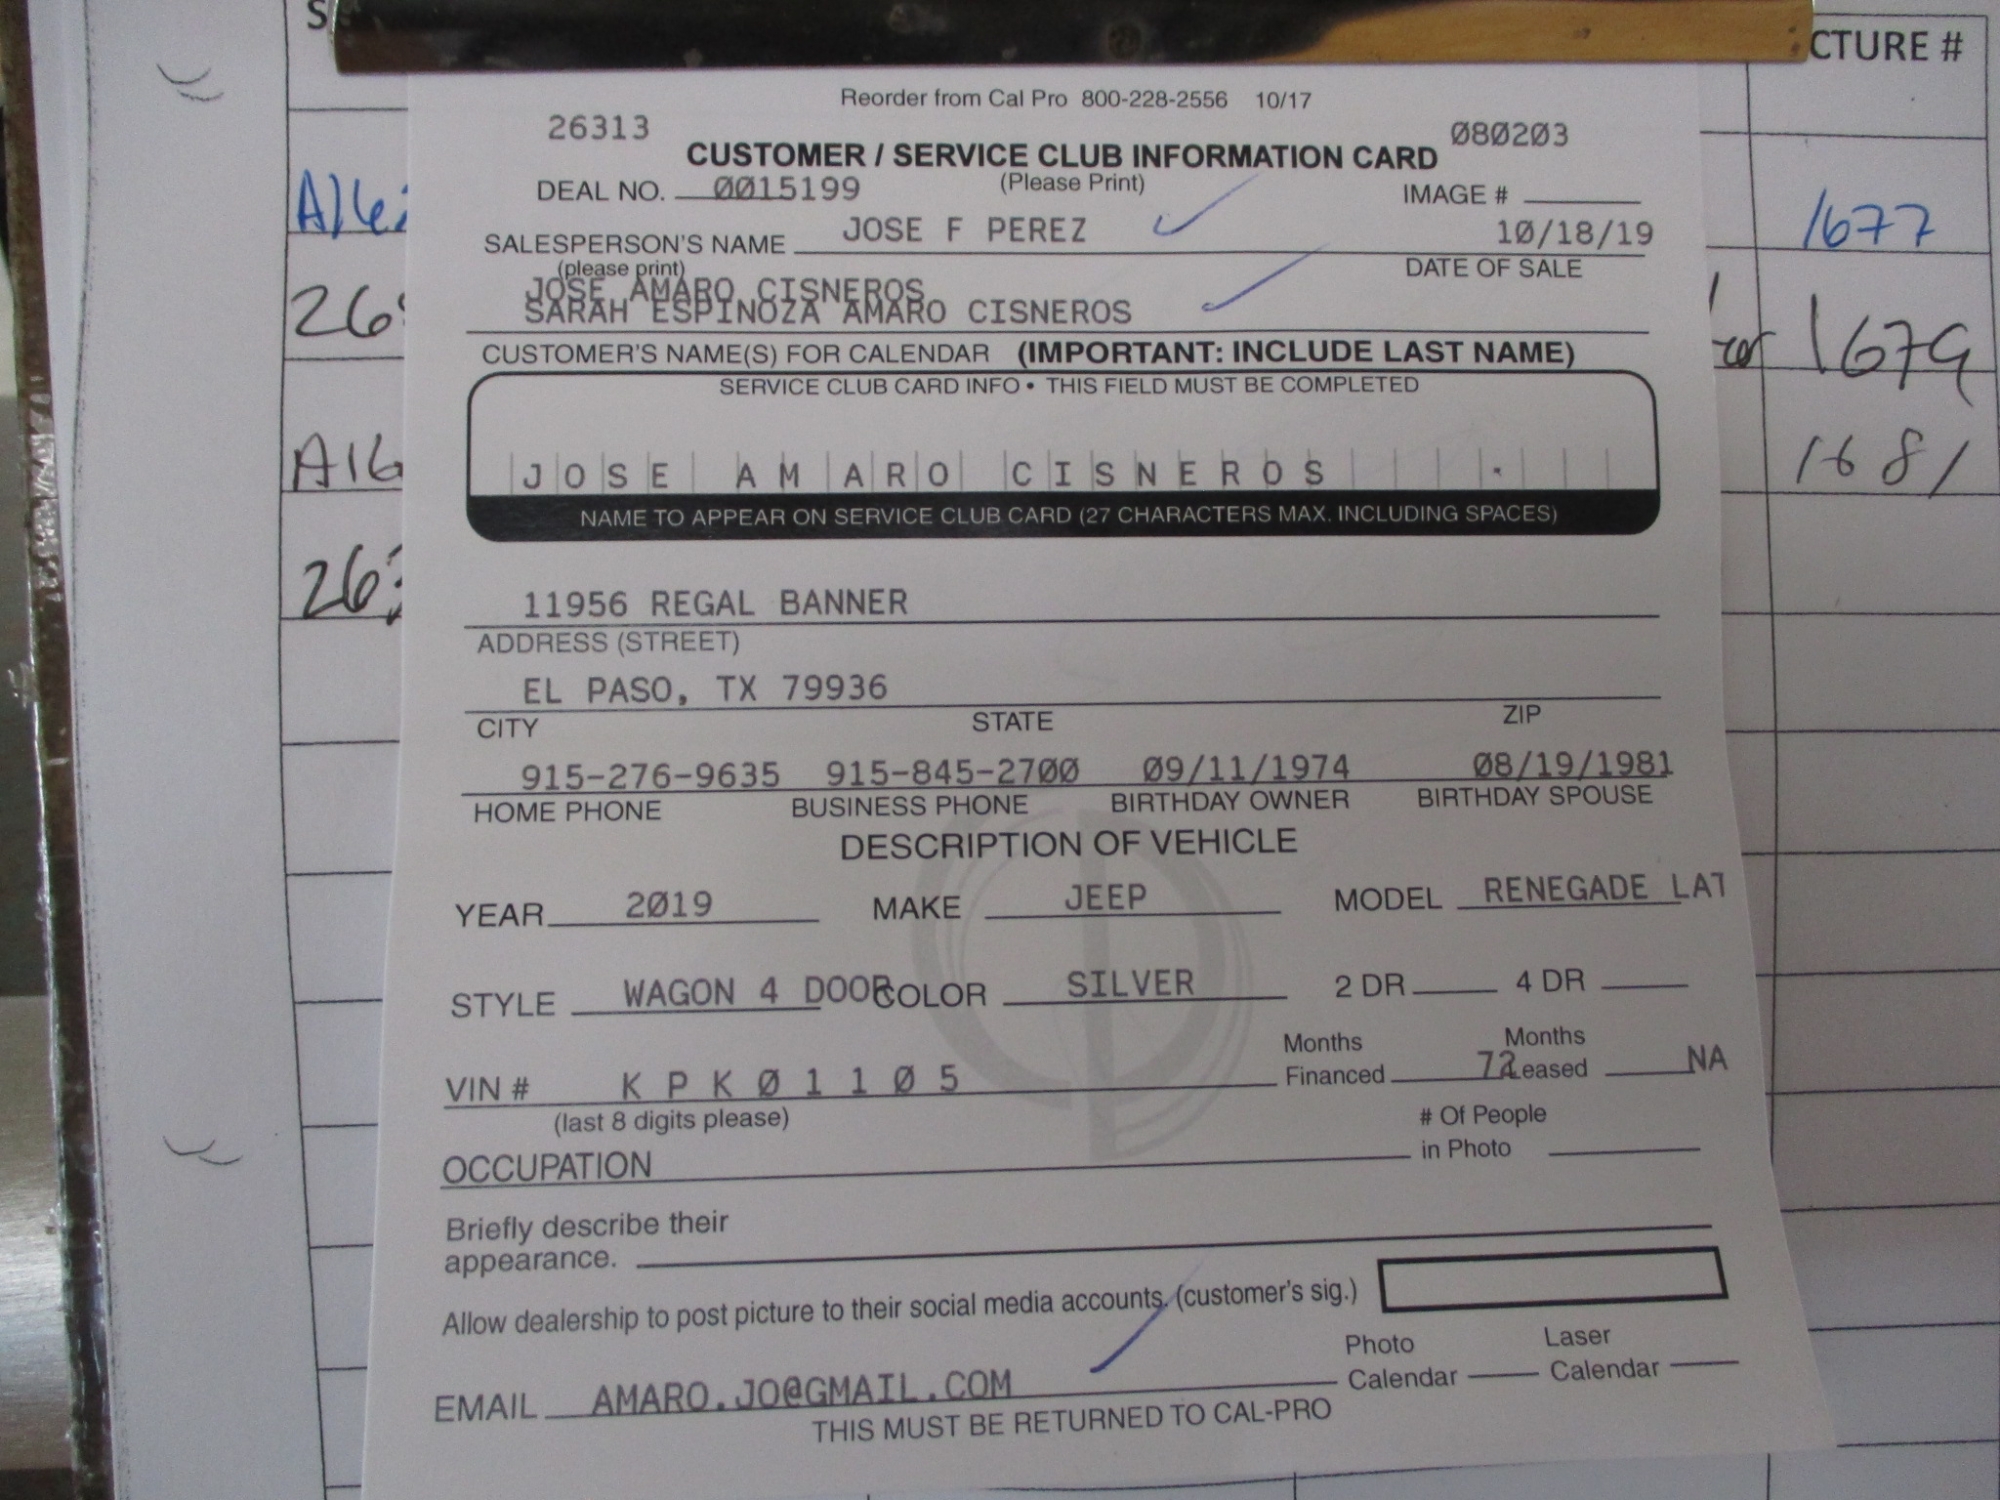 CTURE #
Reorder from Cal Pro 800-228-2556 10/17
26313 080203
CUSTOMER / SERVICE CLUB INFORMATION CARD
(Please Print)
DEAL NO. 0015199 IMAGE #
SALESPERSON'S NAME JOSE F PEREZ 10/18/19
(please print) DATE OF SALE
JOSE AMARO CISNEROS
SARAH ESPINOZA AMARO CISNEROS
CUSTOMER'S NAME(S) FOR CALENDAR (IMPORTANT: INCLUDE LAST NAME)
SERVICE CLUB CARD INFO • THIS FIELD MUST BE COMPLETED
JOSE AMARO CISNEROS
NAME TO APPEAR ON SERVICE CLUB CARD (27 CHARACTERS MAX. INCLUDING SPACES)
11956 REGAL BANNER
ADDRESS (STREET)
EL PASO, TX 79936
CITY STATE ZIP
915-276-9635 915-845-2700 09/11/1974 08/19/1981
HOME PHONE BUSINESS PHONE BIRTHDAY OWNER BIRTHDAY SPOUSE
DESCRIPTION OF VEHICLE
YEAR 2019 MAKE JEEP MODEL RENEGADE LAT
STYLE WAGON 4 DOOR COLOR SILVER 2 DR 4 DR
VIN # K P K 0 1 1 0 5 Months Financed 72 Months Leased NA
(last 8 digits please)
OCCUPATION # Of People in Photo
Briefly describe their
appearance.
Allow dealership to post picture to their social media accounts. (customer's sig.)
EMAIL AMARO.JO@GMAIL.COM Photo Calendar Laser Calendar
THIS MUST BE RETURNED TO CAL-PRO
A16
1677
26
1679
A16
1681
26